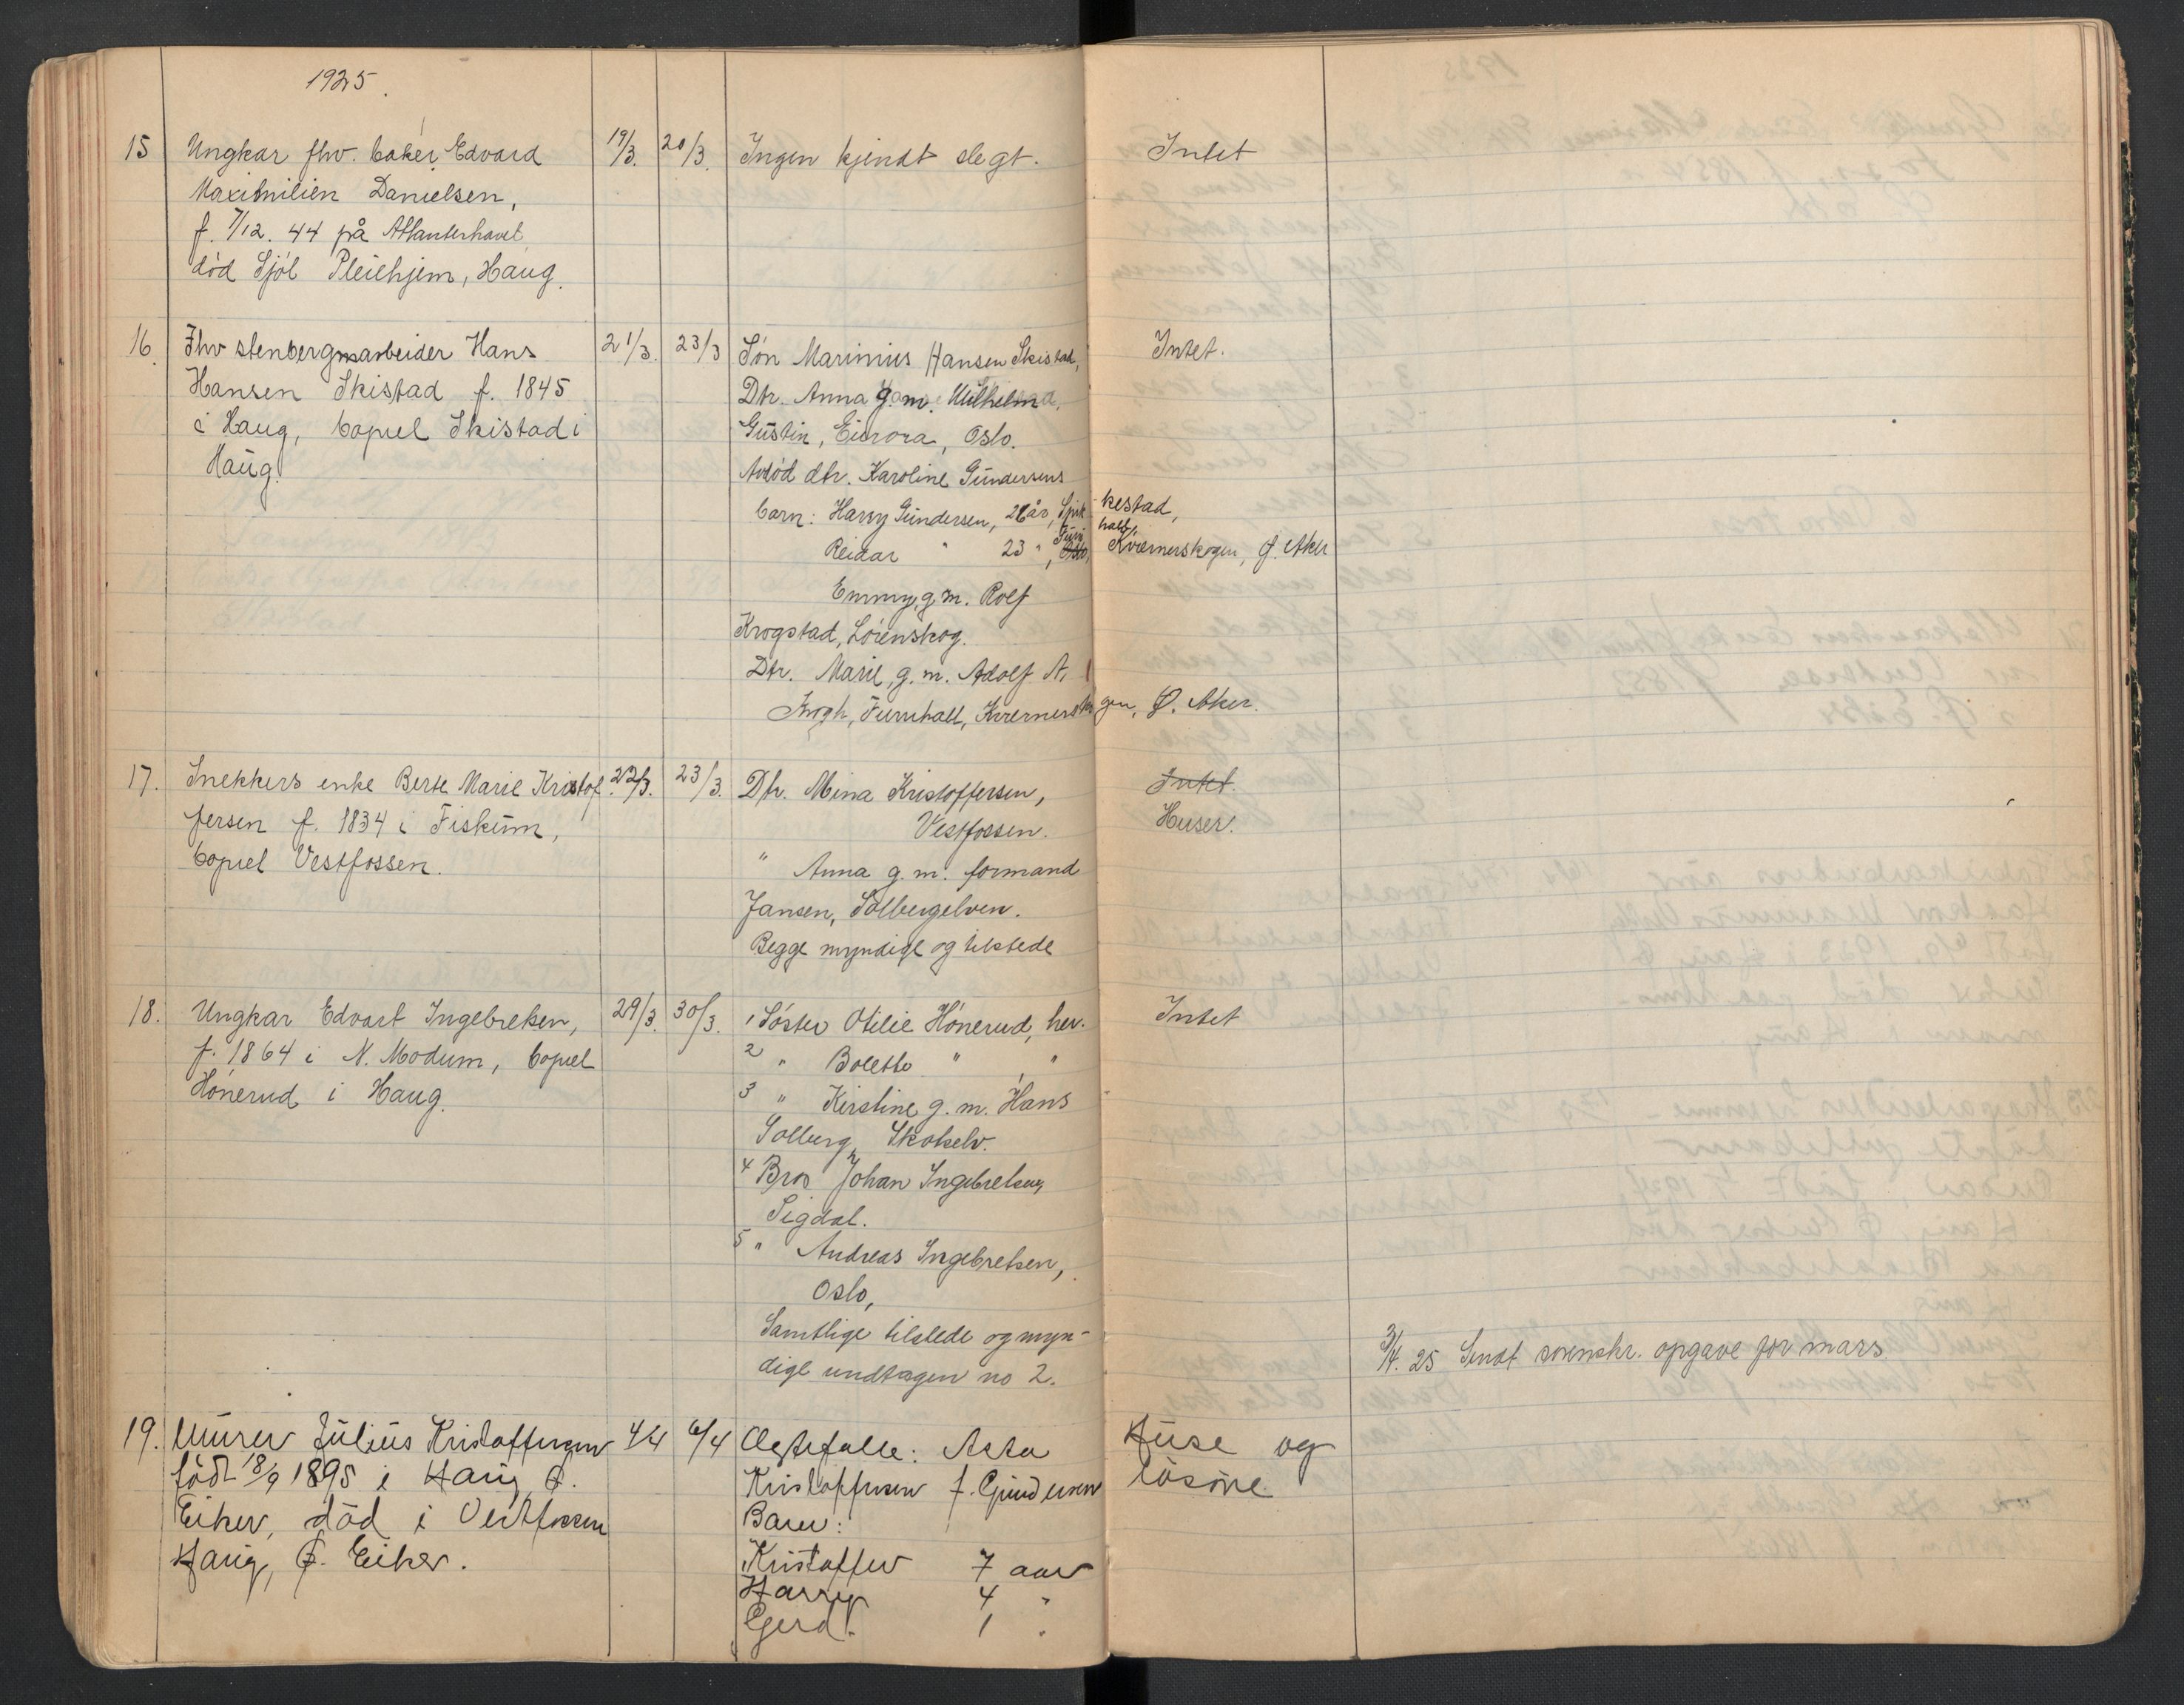 1925.
15 Ungkar fhv. baker Edvard 19/3. 20/3. Ingen kjendt slegt. Intet
Maximilien Danielsen,
f. 7/12. 44 på Atlanterhavet,
död Sjöl Pleiehjem, Haug.
16. Fhv stenbergmarbeider Hans 21/3. 23/3 Sön Marinius Hansen Skistad, Intet.
Hansen Skistad f. 1845 Dtr. Anna g. m. Wilhelm
i Haug, bopæl Skistad i Gustin, Eurora, Oslo.
Haug. Avdöd dtr. Karoline Gundersens
barn: Harry Gundersen, 26 år, Spikkestad,
Furuhall,
Reidar " 23 ", Kværnerskogen, Ø. Aker
Emmy, g. m. Rolf
Krogstad, Lörenskog.
Dtr. Marie, g. m. Adolf A.
Krogh, Furuhall, Kværnerskogen, Ø. Aker.
17. Snekkers enke Berte Marie Kristof- 22/3. 23/3. Dtr. Mina Kristoffersen, Intet.
fersen f. 1834 i Fiskum, Vestfossen. Huser.
bopæl Vestfossen. " Anna g. m. formand
Jansen, Solbergelven.
Begge myndige og tilstede
18. Ungkar Edvart Ingebretsen, 29/3. 30/3. 1 Söster Otilie Hönerud, her. Intet
f. 1864 i N. Modum, bopæl 2 " Bolette " , "
Hönerud i Haug. 3 " Kirstine g. m. Hans
Solberg, Skotselv.
4 Bror Johan Ingebretsen,
Sigdal.
5 " Andreas Ingebretsen,
Oslo,
Samtlige tilstede og myn-
dige undtagen no 2.
3/4. 25 Sendt skr. opgave for mars
19. Murer Julius Kristoffersen 4/4 6/4 Ægtefælle: Asta Huse og
född 18/9 1895 i Haug Ø. Kristoffersen f. Gundersen lösöre
Eiker, död i Vestfossen Barn:
Haug, Ø. Eiker. Kristoffer 7 aar
Harry 4 "
Gerd. 1 "